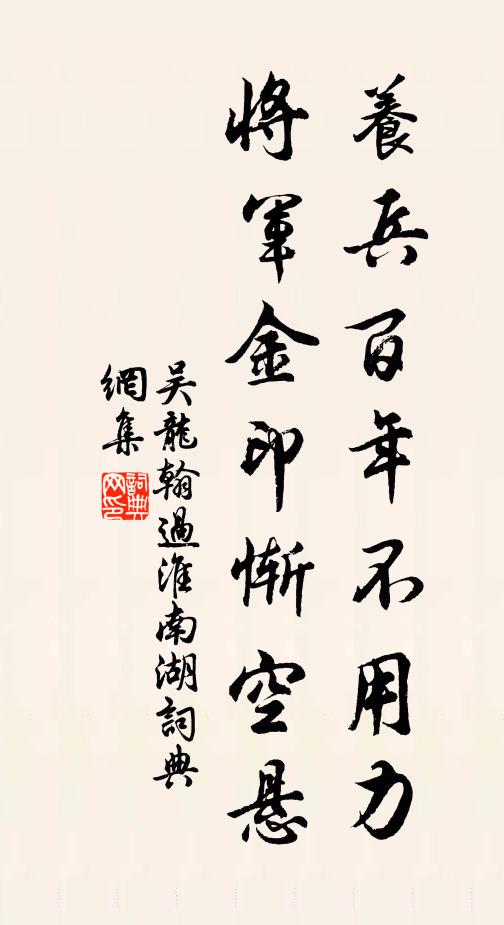 養兵百年不用力
將軍金印慚空悬
吴龍翰過淮南湖詞典
網集
詞典
网印